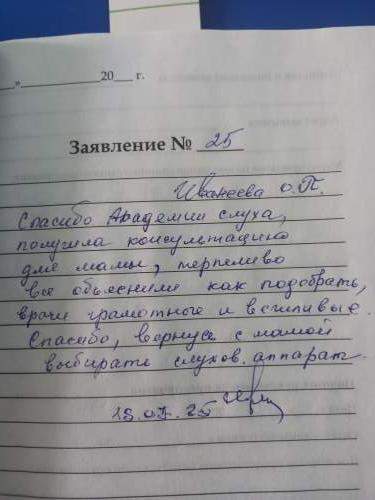 "____ 20__ г.
Заявление № 25
Иванеева О.П.
Спасибо Академии слуха,
получила консультацию
для мамы, терпеливо
все объяснили как подобрать,
врачи грамотные и вежливые.
Спасибо, вернусь с мамой
выбирать слухов. аппарат.